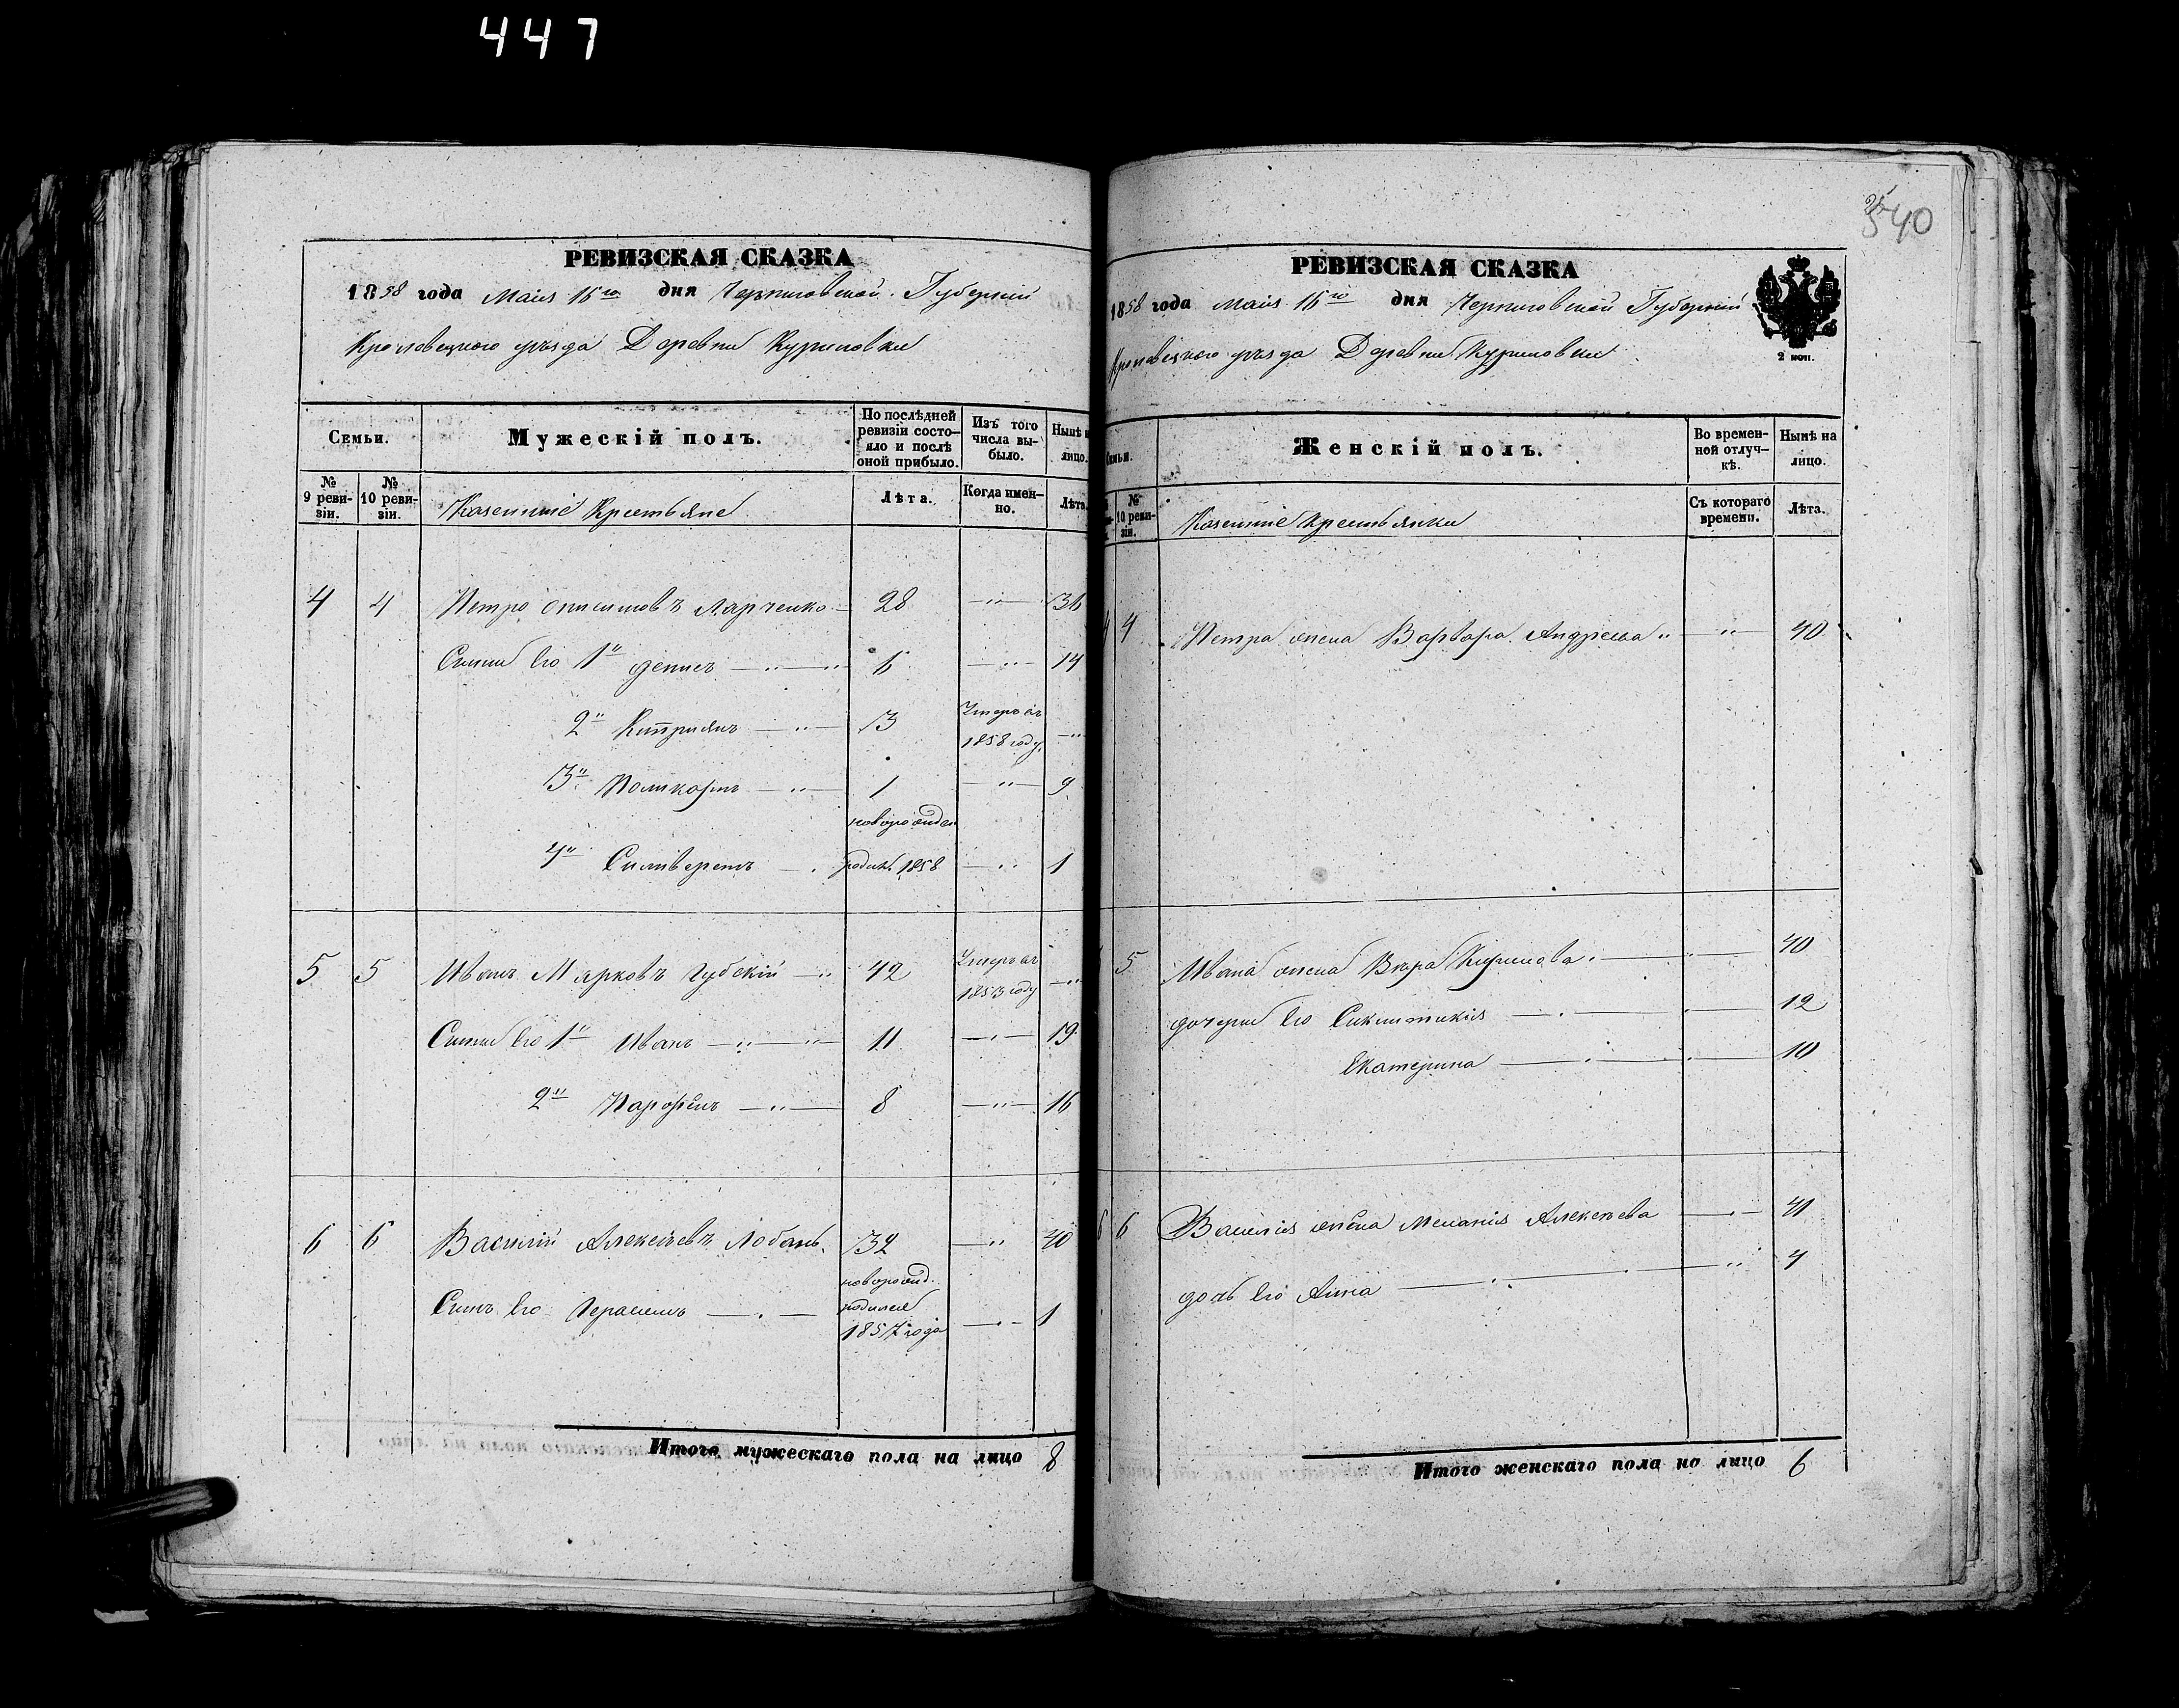 447
РЕВИЗСКАЯ СКАЗКА
1858 года Маія 15го дня Черниговской Губерніи
Кролевецкого уѣзда Деревни Куриловки
Семьи.
Мужескій полъ.
По послѣдней ревизіи состо-
яло и послѣ
оной прибыло.
Изъ того
числа вы-
было.
Нынѣ н
лицо.
№
9 реви-
зіи.
№
10 реви-
зіи.
Казенніе Крестьяне
Лѣта.
Когда имен-
но.
Лѣта.
4 4 Петро Онисимовъ Марченко 28 36
Сини Его 1й Денисъ 6 14
2й Кипріянъ 3 Умеръ въ
1858 году
3й Поликарпъ 1 9
новорожден
4й Силиверстъ родил. 1858 1
5 5 Иванъ Марковъ Губскій 42 Умеръ въ
1853 году
Сини Его 1й Иванъ 11 19
2й Парфенъ 8 16
6 6 Василій Алексѣевъ Лобань 32 40
новорожд.
Синъ Его Герасимъ родился
1857 года 1
Итого мужескаго пола на лицо 8
40
РЕВИЗСКАЯ СКАЗКА
1858 года Маія 15го дня Черниговской Губерніи
Кролевецкого уѣзда Деревни Куриловки
2 коп.
Семьи.
Женскій полъ.
Во времен-
ной отлуч-
кѣ.
Нынѣ на
лицо.
№
10 реви-
зіи.
Казенніе Крестьянки
Съ котораго
времени.
Лѣта.
4 4 Петра жена Варвара Андреева 40
5 Ивана жена Вѣра Кирилова 40
дочери Его Сиклитикія 12
Екатерина 10
6 6 Василія жена Меланія Алексѣева 41
дочь Его Анна 4
Итого женскаго пола на лицо 6